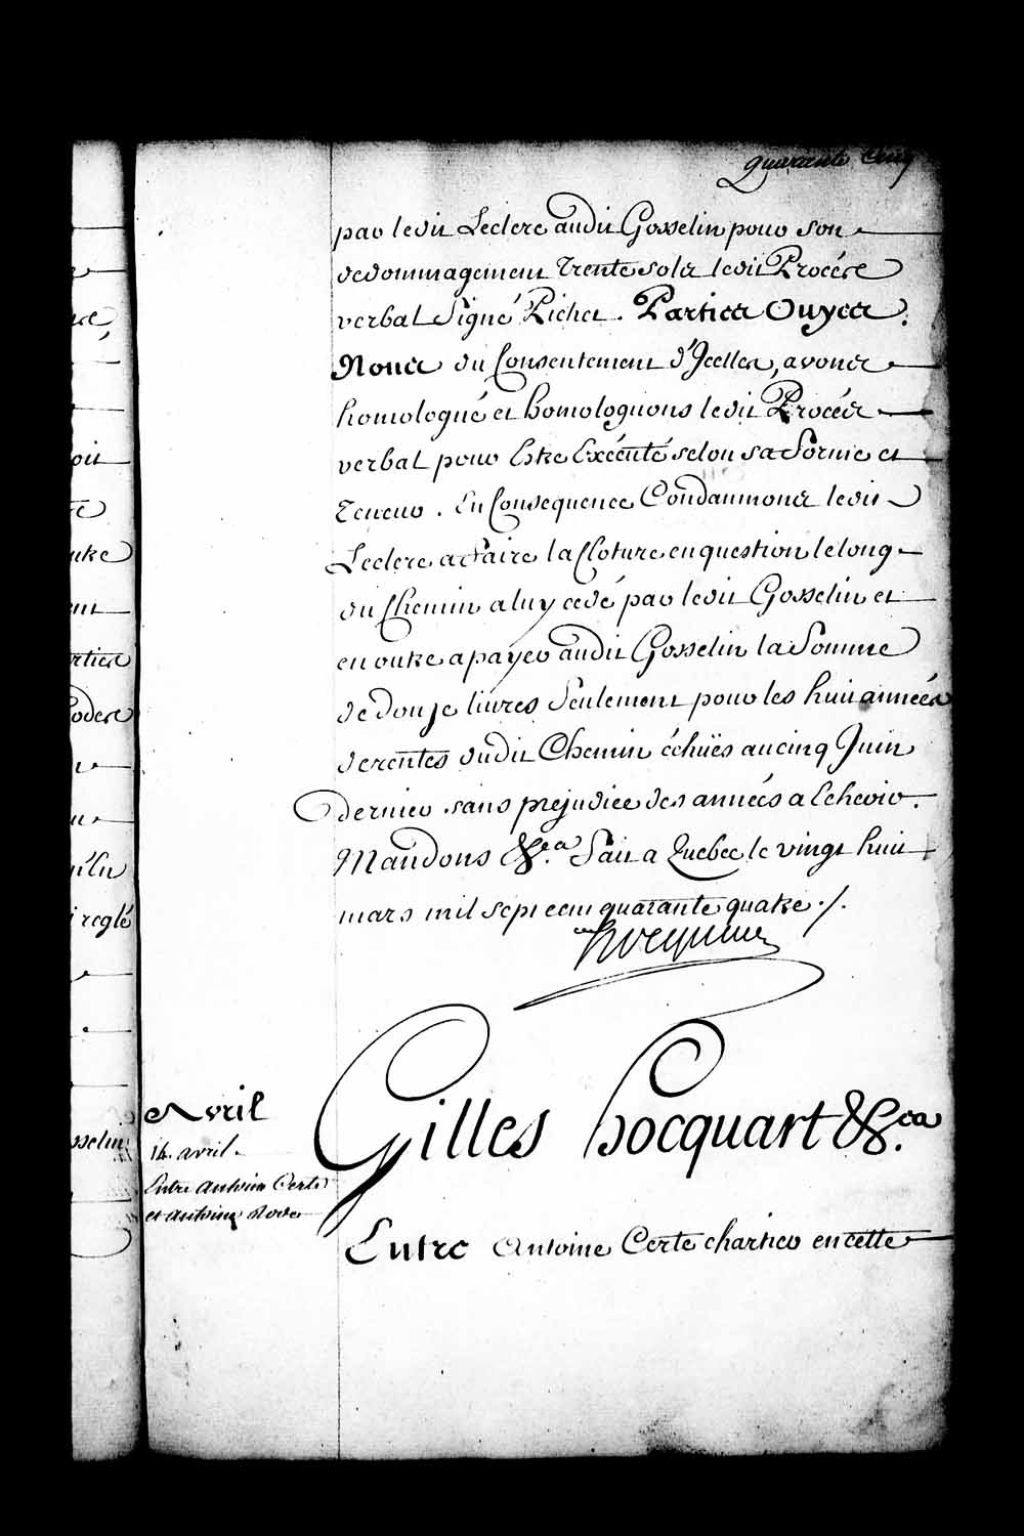 quarante cinq
par ledit Leclerc audit Gosselin pour son
dedommagement trente sols ledit Procés
verbal Signé Richer. Parties Ouyes.
Nous du Consentement d'Jcelles, avons
homologué et homologuons ledit Procés
verbal pour Estre Exécuté selon sa forme et
Teneur. En Consequence Condamnons ledit
Leclerc a faire la Cloture en question le long
du Chemin a luy cedé par ledit Gosselin et
en outre a payer audit Gosselin la Somme
de douze livres Seulement pour les huit années
de rentes dudit Chemin échües au cinq Juin
dernier sans prejudice des années a Echeoir.
Mandons &c.a fait a Quebec le vingt huit
mars mil sept cent quarante quatre ./.
hocquart
Avril
14. avril.
Entre Antoine Certe
et Antoine
Gilles hocquart &c.a
Entre Antoine Certe chartier en cette
té
tre
ent
parties
u
regle
sselin